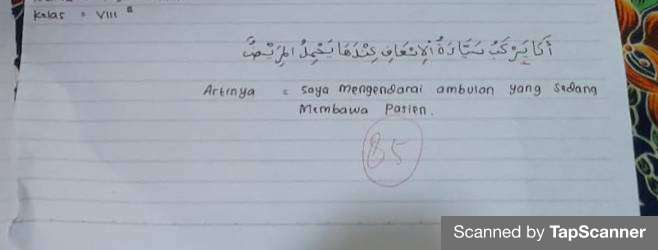 Kelas = VIII B
أَنَا يَرْكَبُ سَيَّارَةُ الْإِسْعَافِ عِنْدَهَا يَحْمِلُ الْمَرِيْضُ
Artinya = saya mengendarai ambulan yang sedang
Membawa Pasien.
85
Scanned by TapScanner